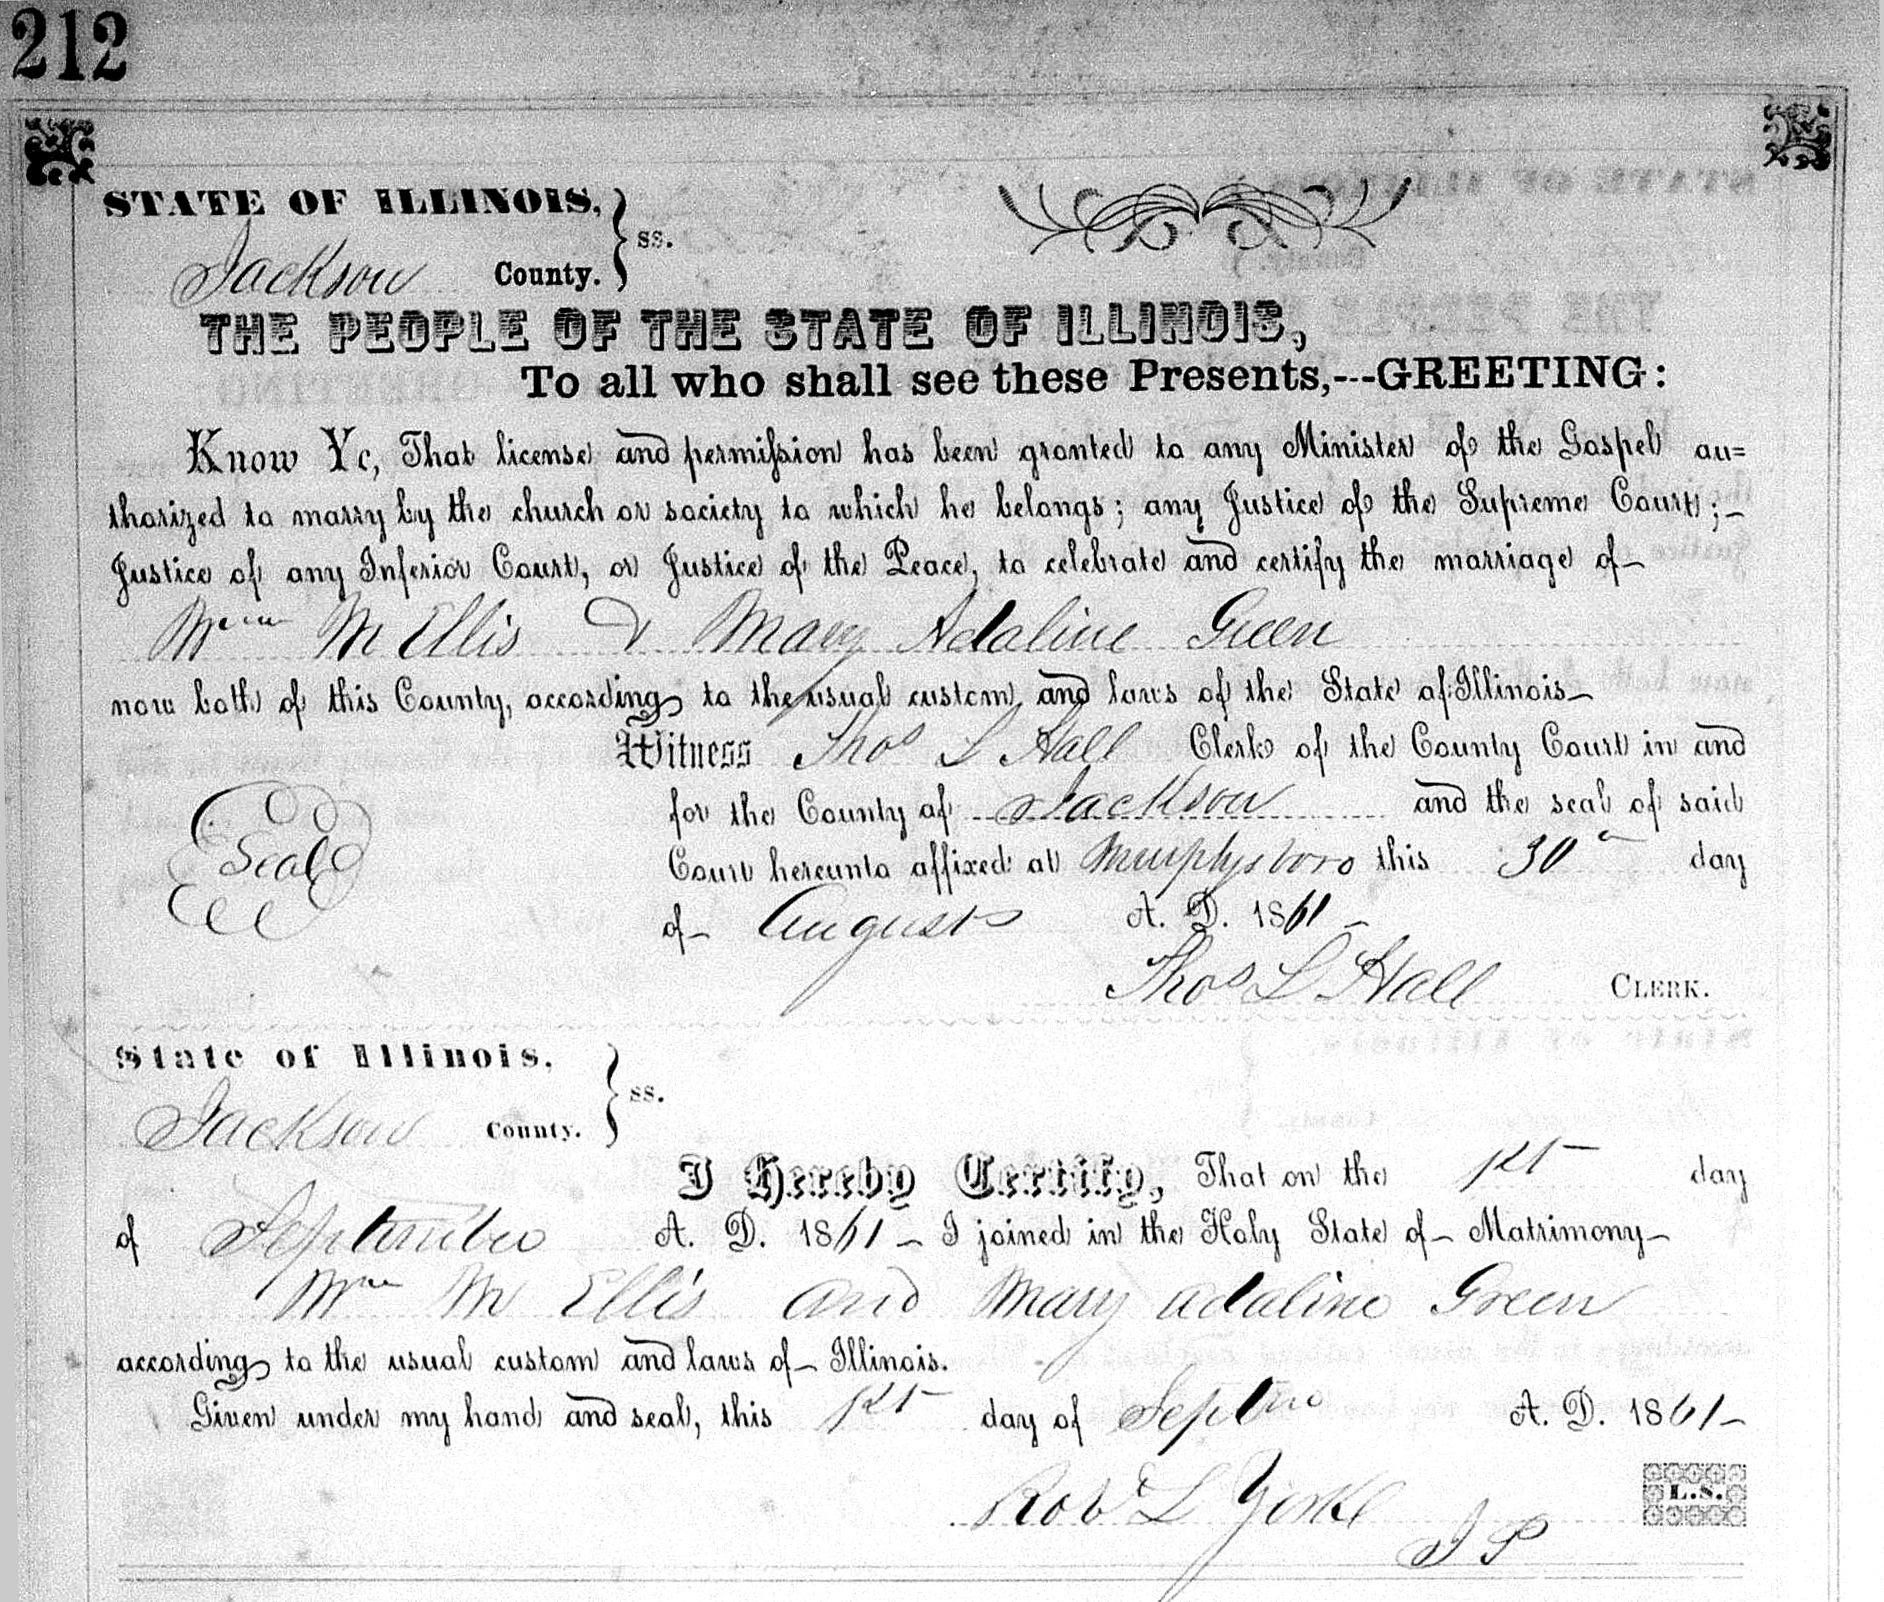 212
STATE OF ILLINOIS, } ss.
Jackson County.
THE PEOPLE OF THE STATE OF ILLINOIS,
To all who shall see these Presents,---GREETING:
Know Ye, That license and permission has been granted to any Minister of the Gospel au=
thorized to marry by the church or society to which he belongs; any Justice of the Supreme Court;-
Justice of any Inferior Court, or Justice of the Peace, to celebrate and certify the marriage of-
Wm M Ellis & Mary Adaline Green
now both of this County, according to the usual custom and laws of the State of Illinois-
Witness Thos L Hall Clerk of the County Court in and
for the County of Jackson and the seal of said
Seal
Court hereunto affixed at Murphysboro this 30th day
of August A. D. 1861-
Thos L Hall CLERK.
State of Illinois. } ss.
Jackson County.
I Hereby Certify, That on the 1st day
of September A. D. 1861- I joined in the Holy State of Matrimony-
Wm M Ellis and Mary Adaline Green
according to the usual custom and laws of Illinois.
Given under my hand and seal, this 1st day of A. D. 1861-
Robt L L.S.
J P